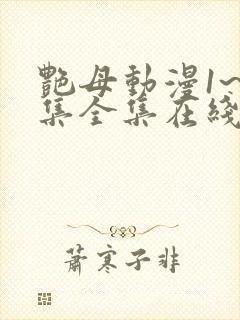 艷母動漫1~
集全集在綫
蕭寒子非